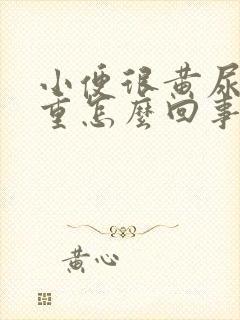 小便很黄尿
重怎麼回事
黄心